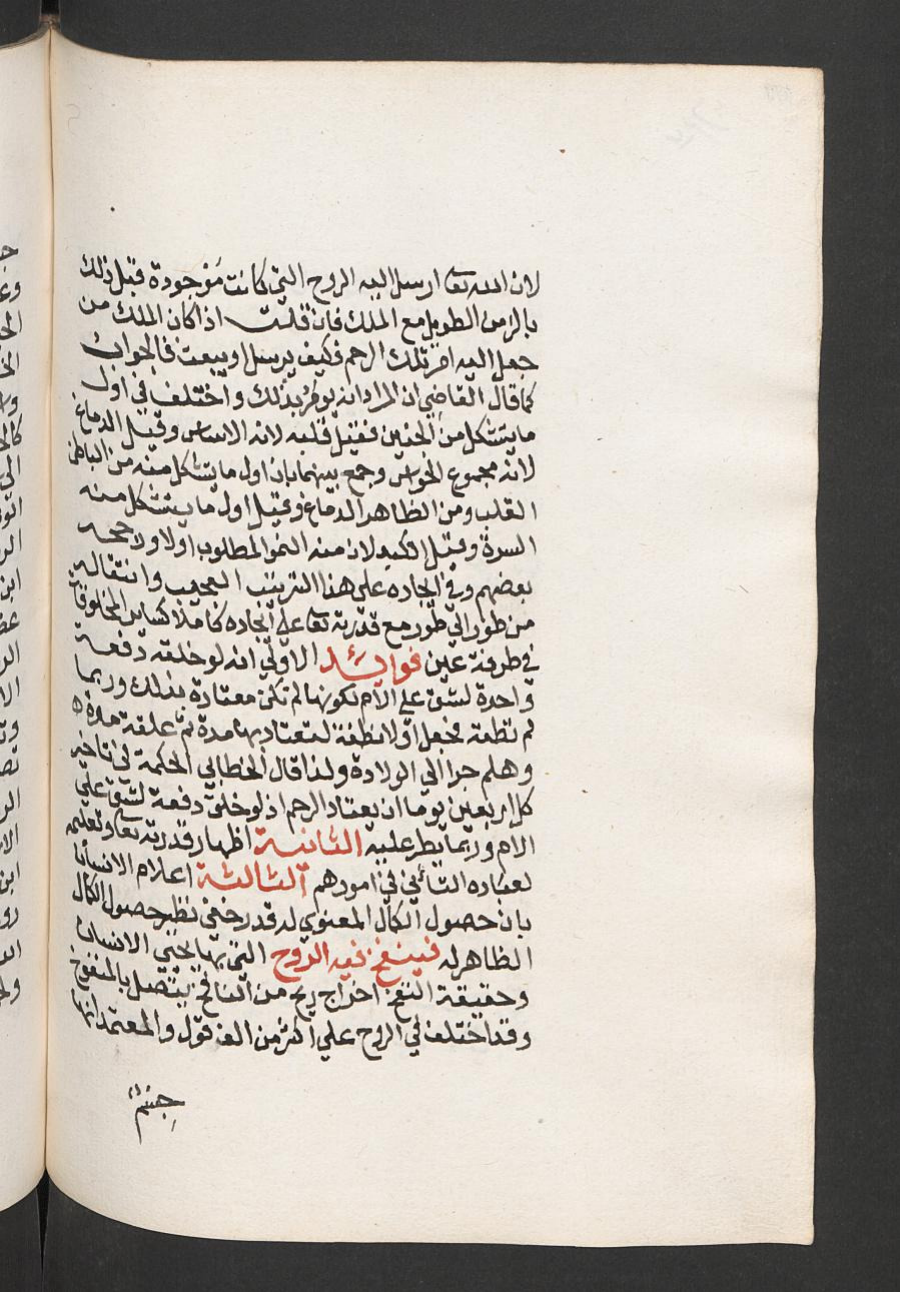 لان الله تعا ارسل اليه الروح التي كانت موجودة قبل ذلك
بالزمن الطويل مع الملك فان قلت اذا كان الملك من
جعل اليه امر تلك الرحم فكيف يرسل او يبعث فالجواب
كما قال القاضي ان المراد انه يومر بذلك واختلف في اول
ما يتشكل من الجنين فقيل قلبه لانه الاساس وقيل الدماغ
لانه مجموع الحواس وجمع بينهما بان اول ما يتشكل منه من الباطن
القلب ومن الظاهر الدماغ وقيل اول ما يتشكل منه
السرة وقيل الكبد لان منه النمو المطلوب اولا ورجحه
بعضهم وفي ايجاده على هذا الترتيب العجيب وانتقاله
من طور الي طور مع قدرته تعا علي ايجاده كاملا كساير المخلوقات
في طرفة عين فوايد الاولي انه لو خلقه دفعة
واحدة لشق علي الام لكونها لم تكن معتادة بذلك وربما
لم تطقه فجعل اولا نطفة لتعتاد بها مدة ثم علقة مدة
وهلم جرا الي الولادة ولذا قال الخطابي الحكمة في تاخير
كل اربعين يوما ان يعتاد الرحم اذ لو خلق دفعة لشق علي
الام وربما يطر عليه الثانية اظهار قدرته تعا وتعليمه
لعباده التأني في امورهم الثالثة اعلام الانسان
بان حصول الكمال المعنوي له قدر خفي نظير حصول الكمال
الظاهر له فينفخ فيه الروح التي بها يحيي الانسان
وحقيقة النفخ اخراج ريح من النافخ يتصل بالمنفوخ
وقد اختلف في الروح علي اكثر من الف قول والمعتمد انها
جسم